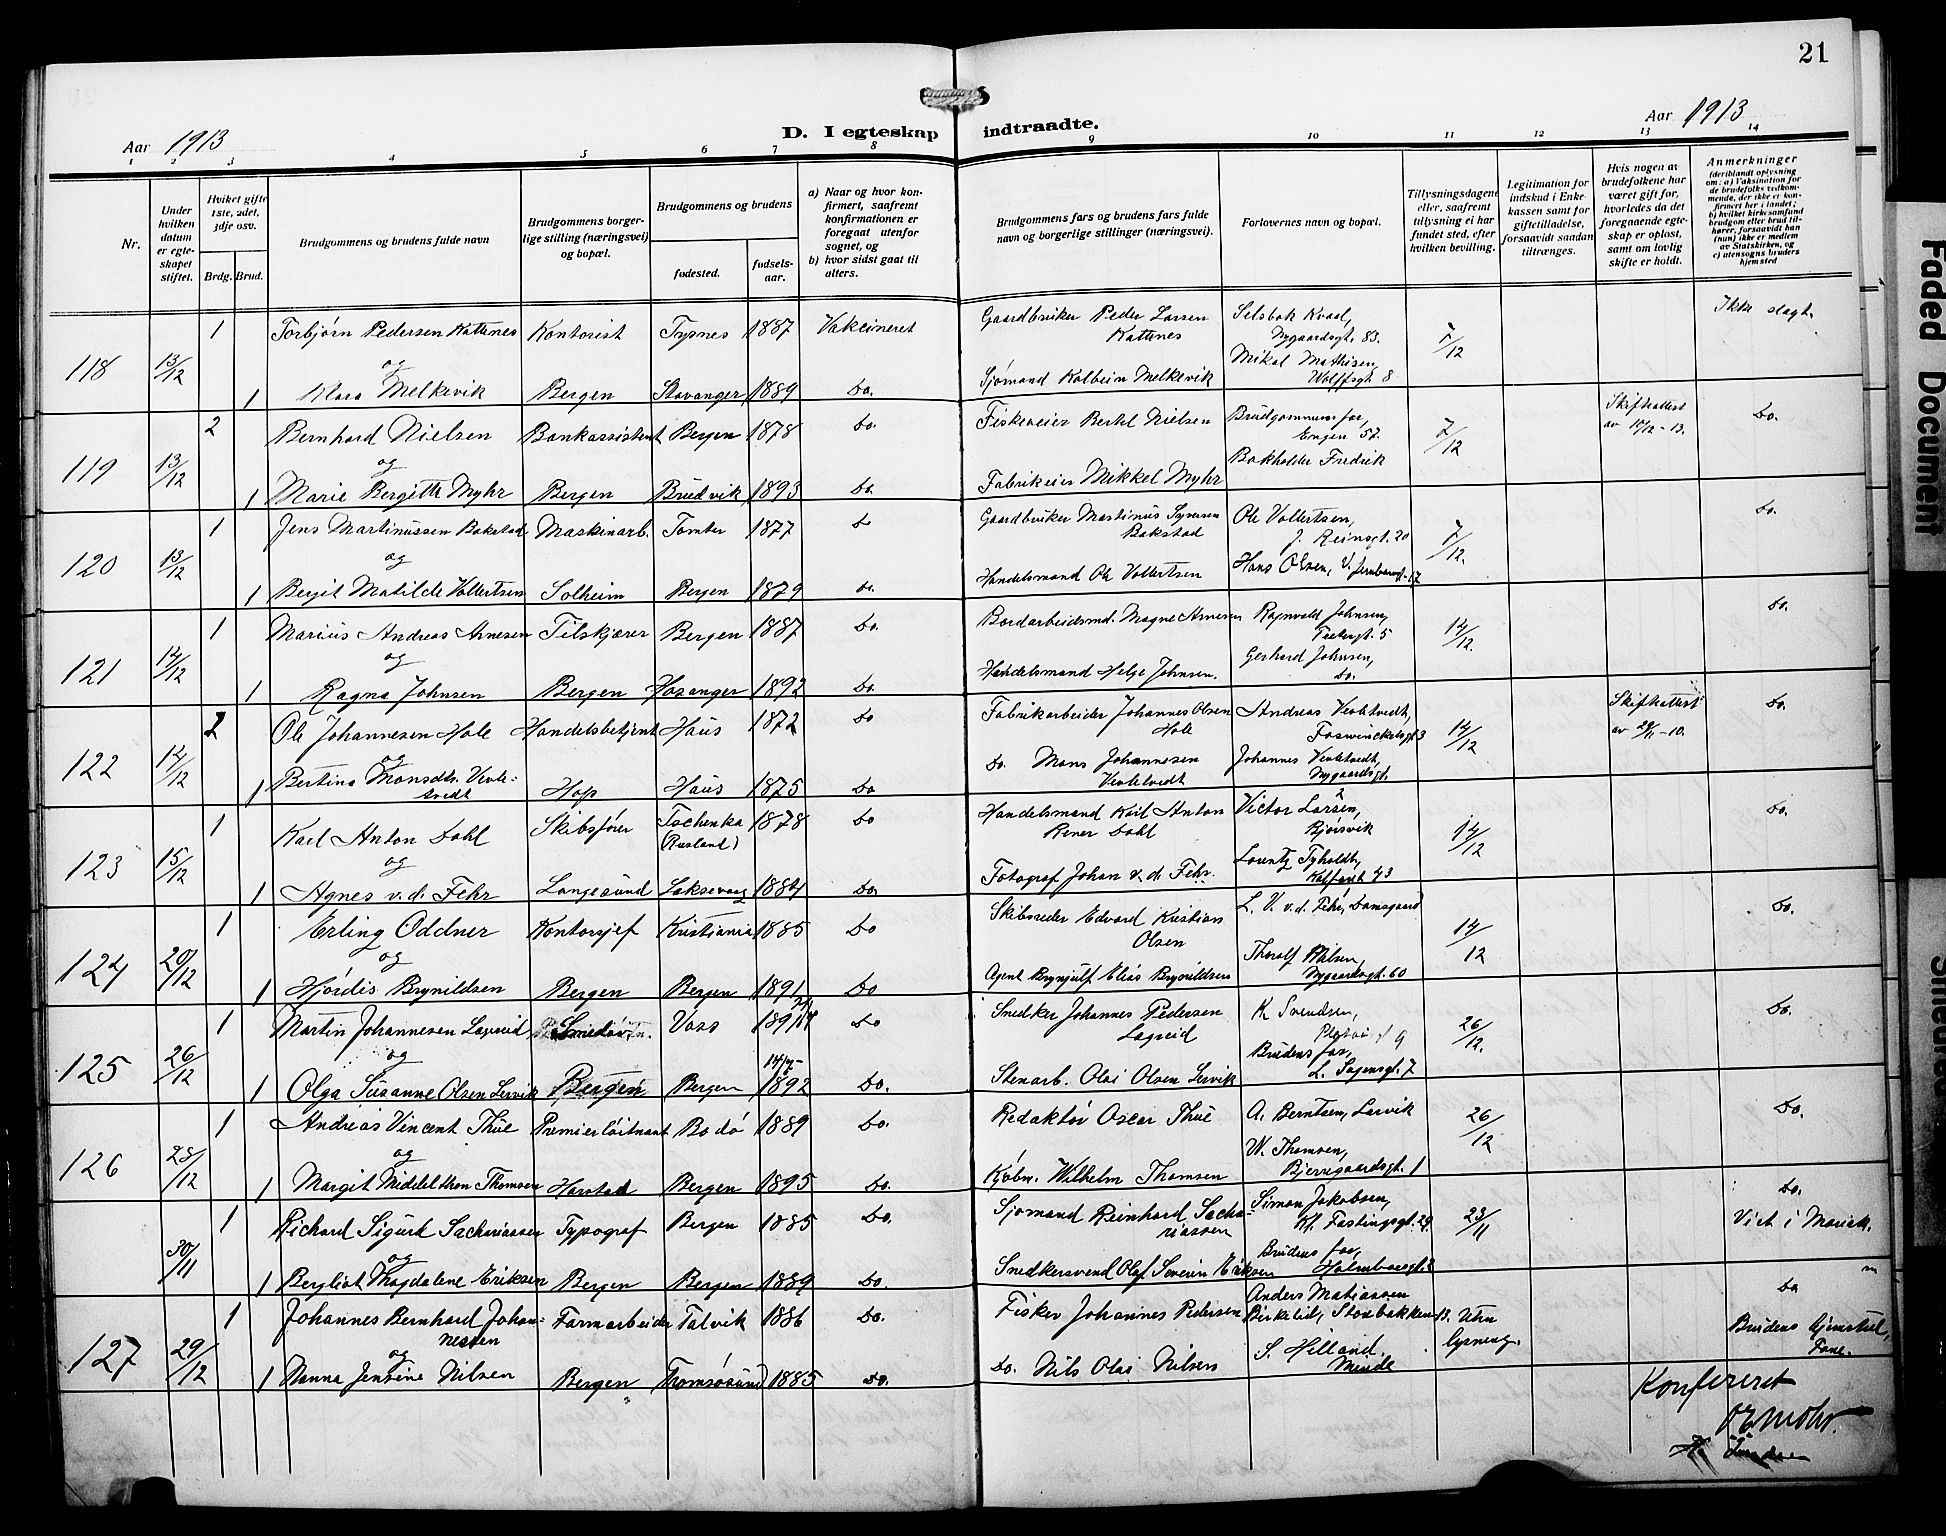 21
Aar 1913
D. I egteskap indtraadte.
Aar 1913
1 2 3 4 5 6 7 8 9 10 11 12 13 14
Nr.
Under hvilken datum er egteskapet stiftet.
Hviket gifte 1ste, 2det, 3dje osv.
Brdg. Brud.
Brudgommens og brudens fulde navn
Brudgommens borgerlige stilling (næringsvei) og bopæl.
Brudgommens og brudens
fødested.
fødselsaar.
a) Naar og hvor konfirmert, saafremt konfirmationen er foregaat utenfor sognet, og
b) hvor sidst gaat til alters.
Brudgommens fars og brudens fars fulde navn og borgerlige stillinger (næringsvei).
Forlovernes navn og bopæl.
Tillysningsdagene eller, saafremt tillysning ei har fundet sted, efter hvilken bevilling.
Legitimation for indskud i Enkekassen samt for giftetilladelse, forsaavidt saadan tiltrænges.
Hvis nogen av brudefolkene har været gift før, hvorledes da det foregaaende egteskap er opløst, samt om lovlig skifte er holdt.
Anmerkninger
(deriblandt oplysning om: a) Vaksination for de brudefolks vedkommende, der ikke er konfirmert her i landet; b) hvilket kirkesamfund brudgom eller brud tilhører, forsaavidt han (hun) ikke er medlem av Statskirken, og c) utensogns bruders hjemsted
118 13/12 1 Torbjørn Pedersen Kattenes Kontorist Tysnes 1887 Vakcineret Gaardbruker Peder Larsen Kattnes Selsbak Kvaal, Nygaardsgt. 83. 7/12 Ikke slegt.
og
1 Klara Melkevik Bergen Stavanger 1889 Do. Sjømand Kolbein Melkevik Mikal Mathisen, Wolffsgt 8
119 13/12 2 Bernhard Nielsen Bankassistent Bergen 1878 Do. Fiskeeier Bertel Nielsen Brudgommens far, Engen 57. 7/12 Skifteattest av 10/12-13. Do.
og
1 Marie Bergitte Myhr Bergen Brudvik 1893 Do. Fabrikeier Mikkel Myhr Bokholder Fredrik
120 13/12 1 Jens Martinussen Bakstad Maskinarb. Tomter 1877 Do Gaardbruker Martinus Syversen Bakstad Ole Vollertsen, J. Reinsgt. 20 7/12. Do.
og
1 Bergit Matilde Vollertsen Solheim Bergen 1879 Do. Handelsmand Ole Vollertsen Hans Olsen,
121 14/12 1 Marius Andreas Arnesen Tilskjærer Bergen 1887 Do. Bordarbeidsmd. Magne Arnesen Ragnvald Johnsen, 14/12. Do.
og
1 Ragna Johnsen Bergen Hosanger 1892 Do. Handelsmand Helge Johnsen. Gerhard Johnsen, Do.
122 14/12 2 Ole Johannesen Hole Handelsbetjent Haus 1872 Do Fabrikarbeider Johannes Olsen Hole Andreas Vevletvedt, Foswinckelsgt 3 14/12 Skifteattest av 29/11-10. Do.
og
1 Bertina Monsdtr. Vevletvedt Hop Haus 1875 Do Do. Mons Johannesen Vevletvedt Johannes Vevletvedt, Nygaardsgt.
123 15/12 1 Karl Anton Dahl Skibsfører Tschenka (Rusland) 1878 Do Handelsmand Karl Anton Rener Dahl Victor Larsen, Bjørsvik 14/12 Do.
og
1 Agnes v. d. Fehr Langesund Laksevaag 1884 Do. Fotograf Johan v. d. Fehr. Lorentz Tyholdt, Kalfaret 43
124 20/12 1 Erling Oddner Kontorsjef Kristiania 1885 Do Skibsreder Edvard Kristian Olsen L. V. v. d. Fehr, Damsgaard 14/12 Do.
og
1 Hjørdis Brynildsen Bergen Bergen 1891 Do Agent Brynjulf Elias Brynildsen Thoralf Nilsen, Nygaardsgt. 60
125 26/12 1 Martin Johannesen Lagreid Voss Do Snedker Johannes Pedersen Lagreid K. Svendsen, 26/12. Do.
og
1 Olga Susanne Olsen Lervik Bergen Bergen 1892 Do. Stenarb. Olai Olsen Lervik Brudens far, L. Sagensgt. 7
126 28/12 1 Andreas Vincent Thue Premierløitnant Bodø 1889 Do. Redaktør Oscar Thue A. Berntsen, Larvik 26/12 Do.
og
1 Margit Middelthon Thomsen Harstad Bergen 1895 Do. Kjøbm. Wilhelm Thomsen W. Thomsen, Bjerregaardsgt. 1
30/11 1 Richard Sigurd Sachariassen Typograf Bergen 1885 Do. Sjømand Reinhard Sachariassen Simon Jakobsen, Kl. Fastingsgt. 29 23/11 Do. Viet i Mariak.
og
1 Bergliot Magdalene Eriksen Bergen Bergen 1889 Do. Snedkersvend Olaf Severin Eriksen Brudens far, Holmboesgt. 2
127 29/12 1 Johannes Bernhard Johannessen Farmarbeider Talvik 1886 Do. Fisker Johannes Pedersen Anders Matiassen Birkelid, Storbakken 13. Uten lysning. Do Brudens hjemsted, Fane.
og
1 Nanna Jensine Nilsen Bergen Thomsøsund 1885 Do. Do. Nils Olai Nilsen S. Hilland, Minde
Konfereret
OEMohr.
Faded Document